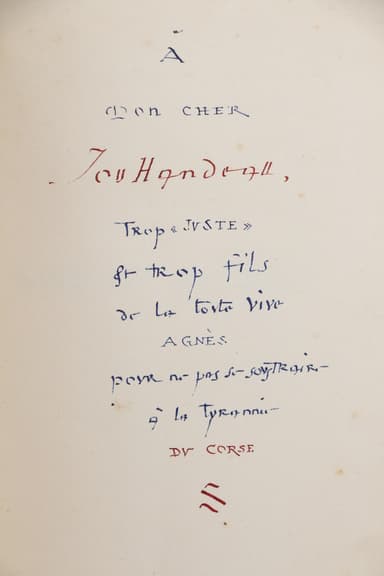 À
Mon CHER
Jouhandeau,
Trop « JVSTE »
et trop fils
de la toute vive
AGNÈS
pour ne pas se soustraire
à la Tyrannie
DV CORSE